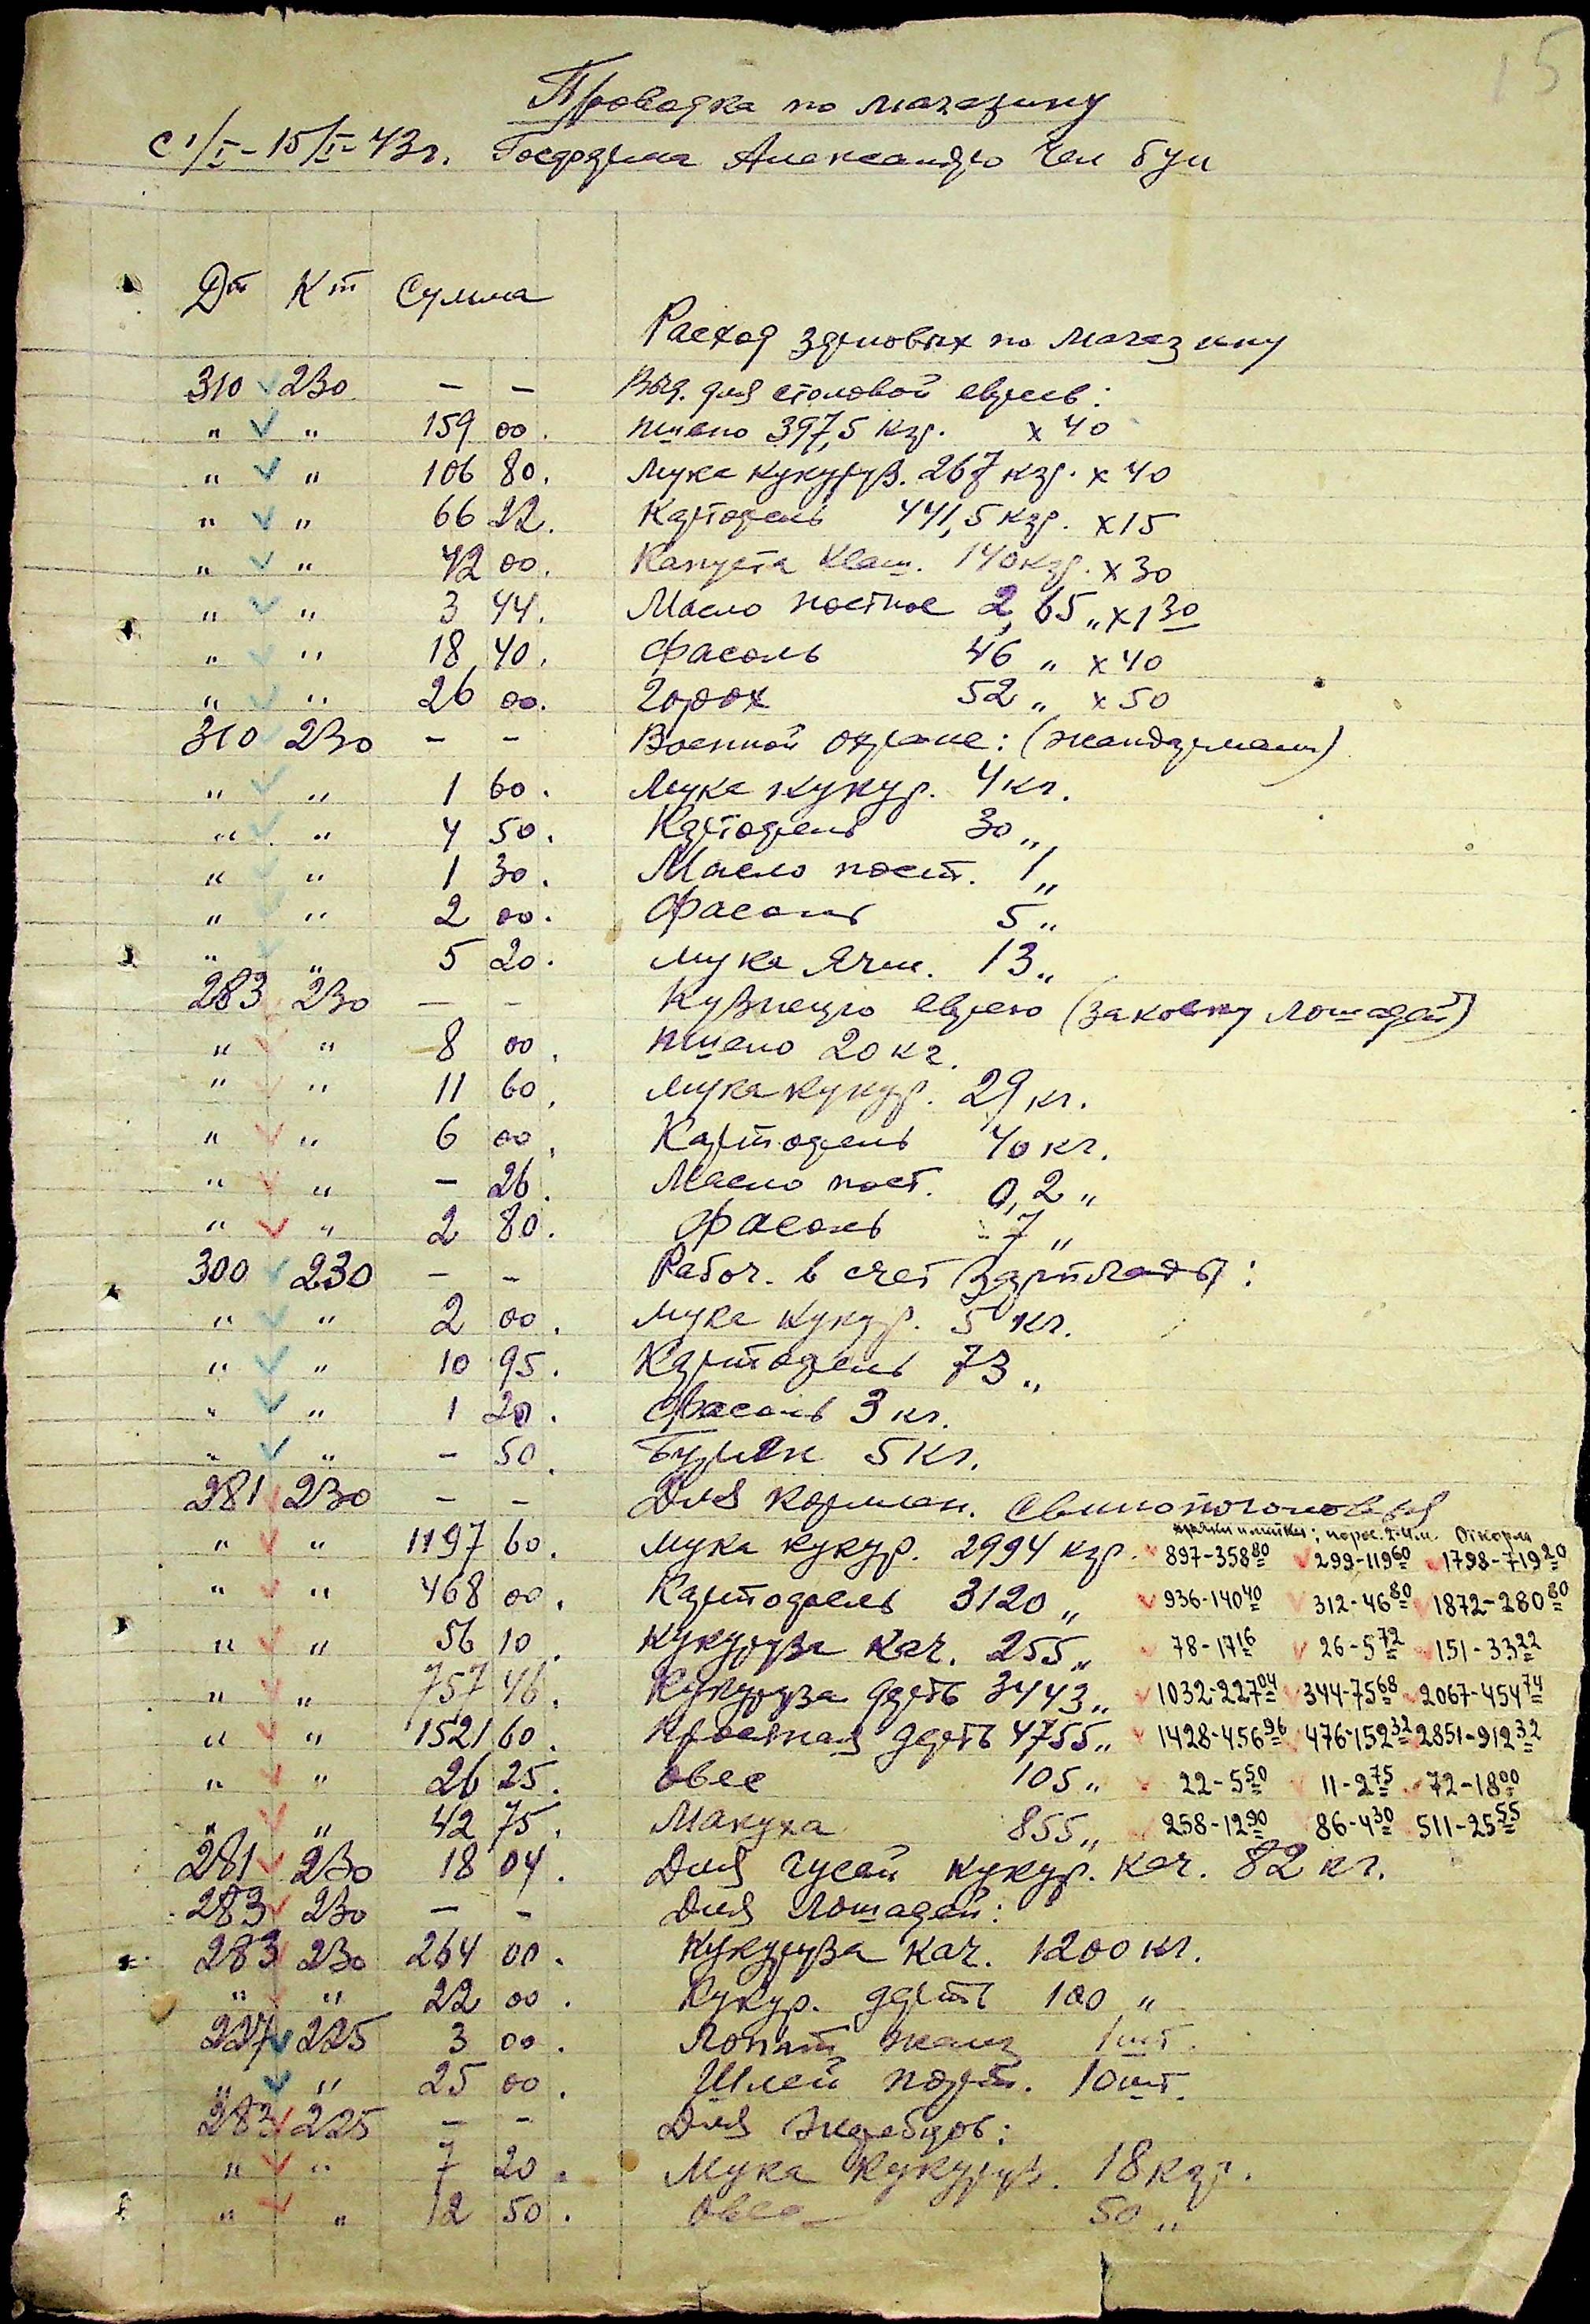 15
Проводка по магазину
с 1/I - 15/I - 43г. Александро
Дт Кт Сумма
Расход зерновых по магазину
310 230 — — Выд. для столовой евреев:
" " 159 00. пшено 397,5 кгр. х 40
" " 106 80. Мука кукуруз. 267 кгр. х 40
" " 66 22. Картофель 441,5 кгр. х 15
" " 42 00. Капуста кваш. 140 кгр. х 30
" " 3 44. Масло постное 2,65 " х 1 30
" " 18 40. Фасоль 46 " х 40
" " 26 00. Горох 52 " х 50
310 230 — — Военной охране: (жандармам)
" " 1 60. Мука кукур. 4 кг.
" " 4 50. Картофель 30 "
" " 1 30. Масло пост. 1 "
" " 2 00. Фасоль 5 "
" " 5 20. Мука ячм. 13 "
283 230 — — Кузнецу еврею (за ковку лошадей)
" " 8 00. пшено 20 кг.
" " 11 60. мука кукур. 29 кг.
" " 6 00. Картофель 40 кг.
" " — 26. Масло пост. 0,2 "
" " 2 80. Фасоль 7 "
300 230 — — Рабоч. в счет зарплаты:
" " 2 00. мука кукур. 5 кг.
" " 10 95. Картофель 73 "
" " 1 20. Фасоль 3 кг.
" " — 50. Буряк 5 кг.
281 230 — — Для кормлен. свинопоголовья
и матки; порос. 2-4 м. Откорм
" " 1197 60. Мука кукур. 2994 кгр. 897-358 80 299-119 60 1798-719 20
" " 468 00. Картофель 3120 " 936-140 40 312-46 80 1872-280 80
" " 56 10. Кукуруза кач. 255 " 78-17 16 26-5 72 151-33 22
" " 757 46. Кукуруза дерть 3443 " 1032-227 04 344-75 68 2067-454 74
" " 1521 60. дерть 4755 " 1428-456 96 476-152 32 2851-912 32
" " 26 25. овес 105 " 22-5 50 11-2 75 72-18 00
" " 42 75. Макуха 855 " 258-12 90 86-4 30 511-25 55
281 230 18 04. Для гусей кукур. кач. 82 кг.
283 230 — — Для лошадей:
283 230 264 00. Кукуруза кач. 1200 кг.
" " 22 00. Кукур. дерть 100 "
227 225 3 00. Лопат 1 шт.
" " 25 00. Шлей 10 шт.
283 225 — — Для жеребцов:
" " 7 20. Мука кукуруз. 18 кгр.
" " 12 50. Овса 50 "